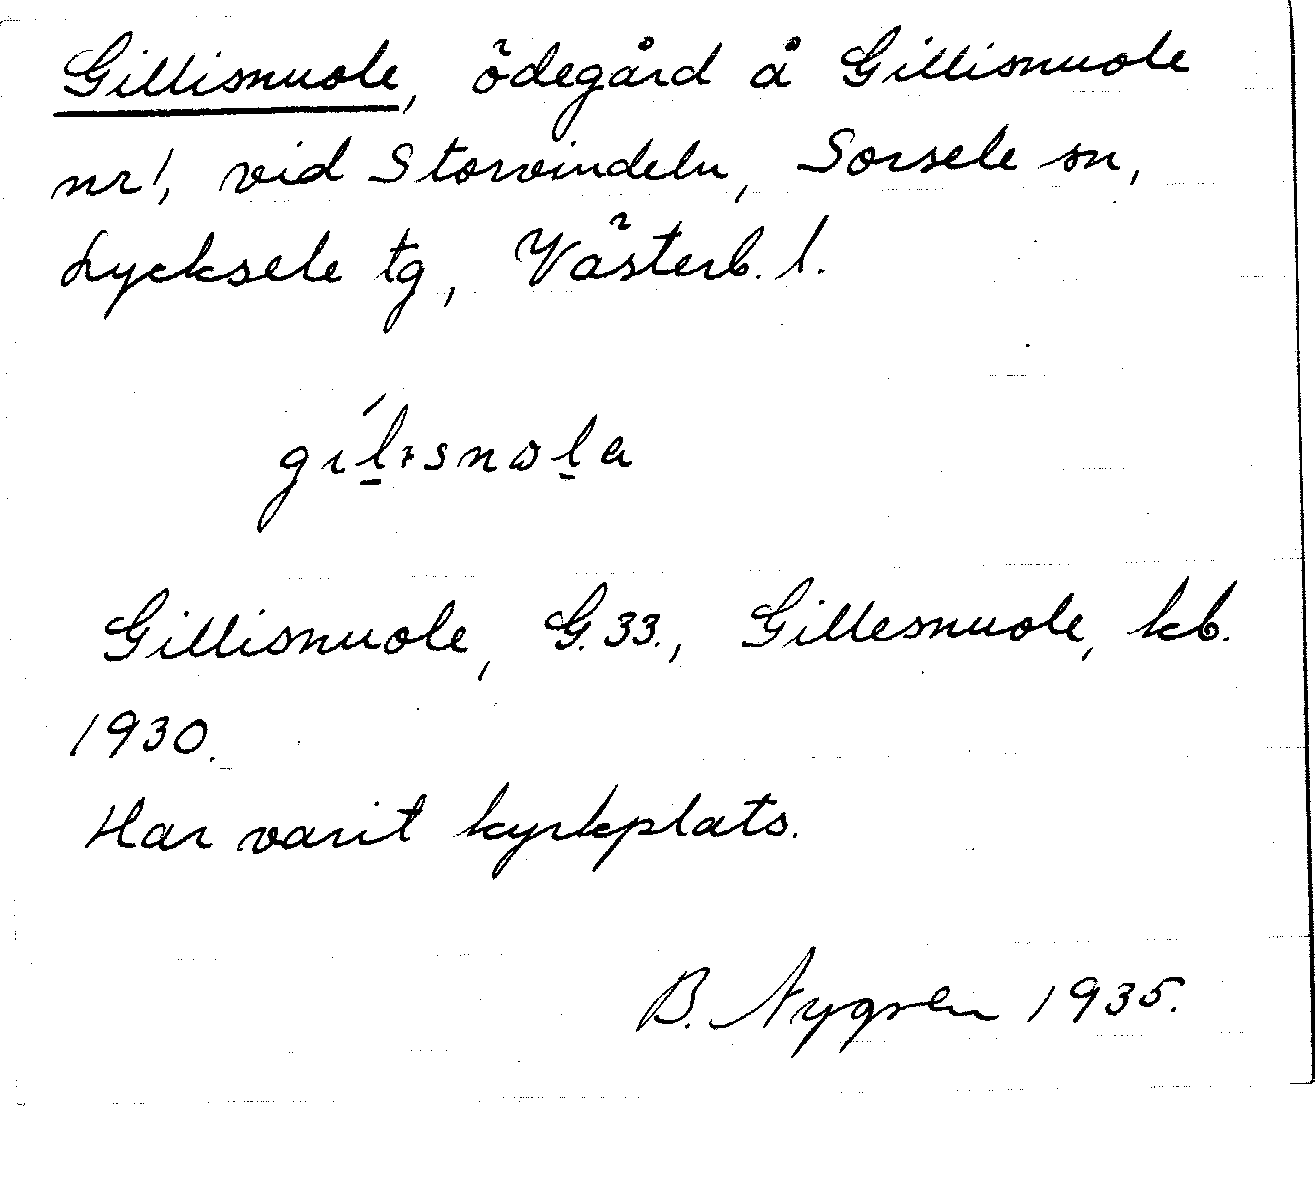 Gillisnuole, ödegård å Gillisnuole
nr 1, vid Storvindeln, Sorsele sn,
Lycksele tg, Västerb. l.
Gillisnuole, G. 33., Gillesnuole, kb.
1930.
Har varit kyrkplats.
B. Nygren 1935.